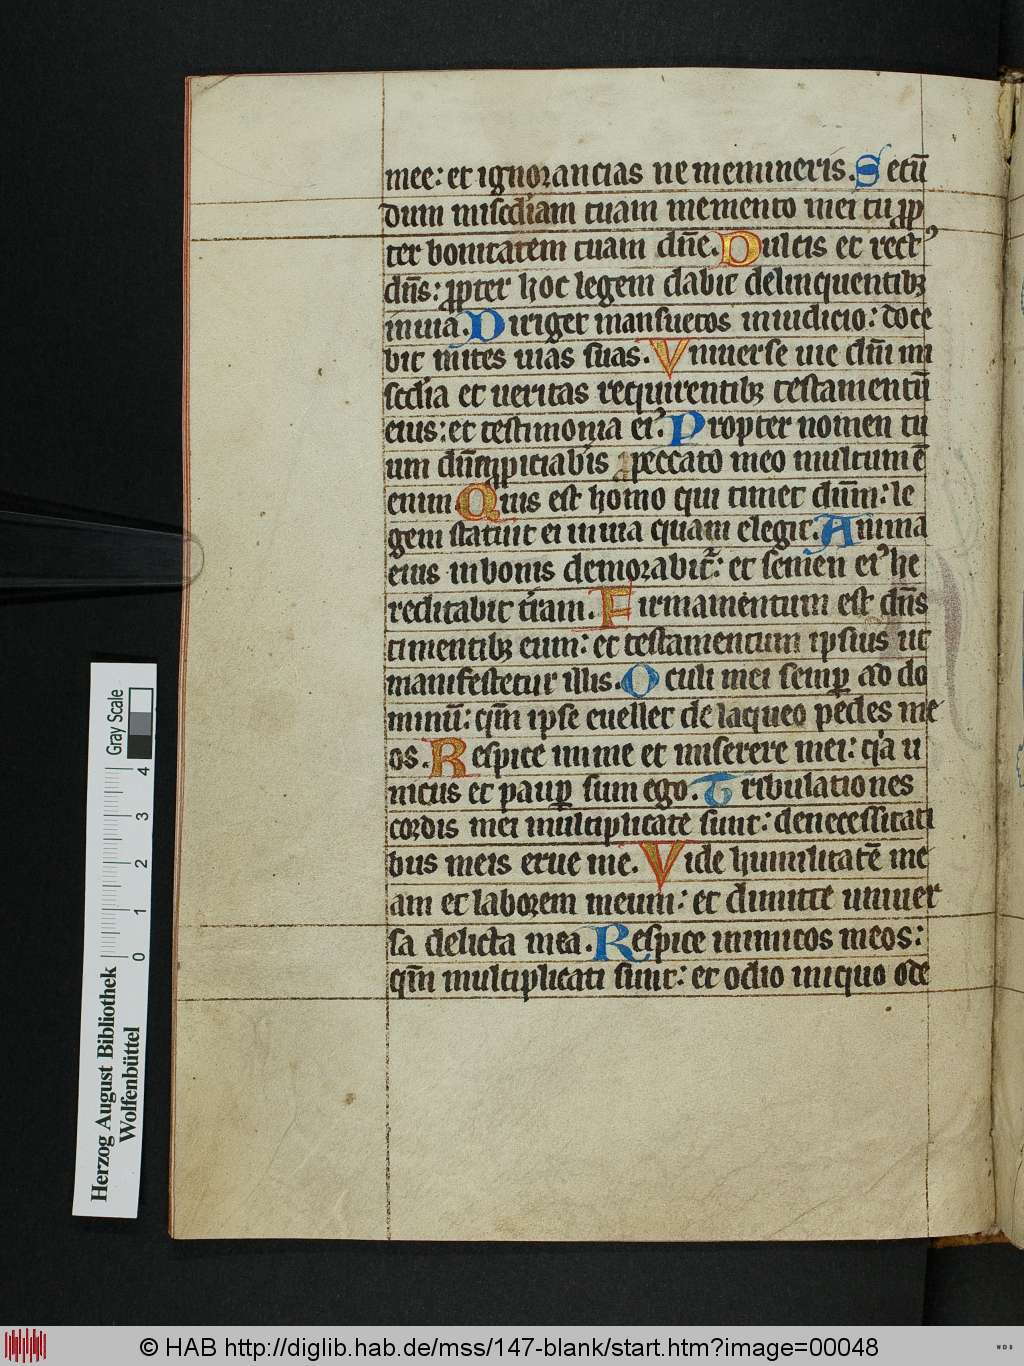 mee: et ignorancias ne memineris. Secū
dum miscd̄iam tuam memento mei tu ꝓp
ter bonitatem tuam dn̄e. Dulcis et rect᾿
dn̄s: ꝓpter hoc legem dabit delinquentibꝫ
inuia. Diriget mansuetos iniudicio: doce
bit mites uias suas. Vniuerse uie dn̄i mi
scd̄ia et ueritas requirentibꝫ testamentū
eius: et testimonia ei᾿. Propter nomen tu
um dn̄e ꝓpiciabis peccato meo multum ē
enim Quis est homo qui timet dn̄m: le
gem statuit ei inuia quam elegit. Anima
eius inbonis demorabit᷑: et semen ei᾿ he
reditabit t̄ram. Firmamentum est dn̄s
timentibꝫ eum: et testamentum ipsius ut
manifestetur illis. Oculi mei semꝑ ad do
minū: qm̄ ipse euellet de laqueo pedes me
os. Respice inme et miserere mei: q̓a u
nicus et pauꝑ sum ego. Tribulationes
cordis mei multiplicate sunt: denecessitati
bus meis erue me. Vide humilitatē me
am et laborem meum: et dimitte uniuer
sa delicta mea. Respice inimicos meos:
qm̄ multiplicati sunt: et odio iniquo ode
Herzog August Bibliothek
Wolfenbüttel
0 1 2 3 4
Gray Scale
© HAB http://diglib.hab.de/mss/147-blank/start.htm?image=00048
HAB